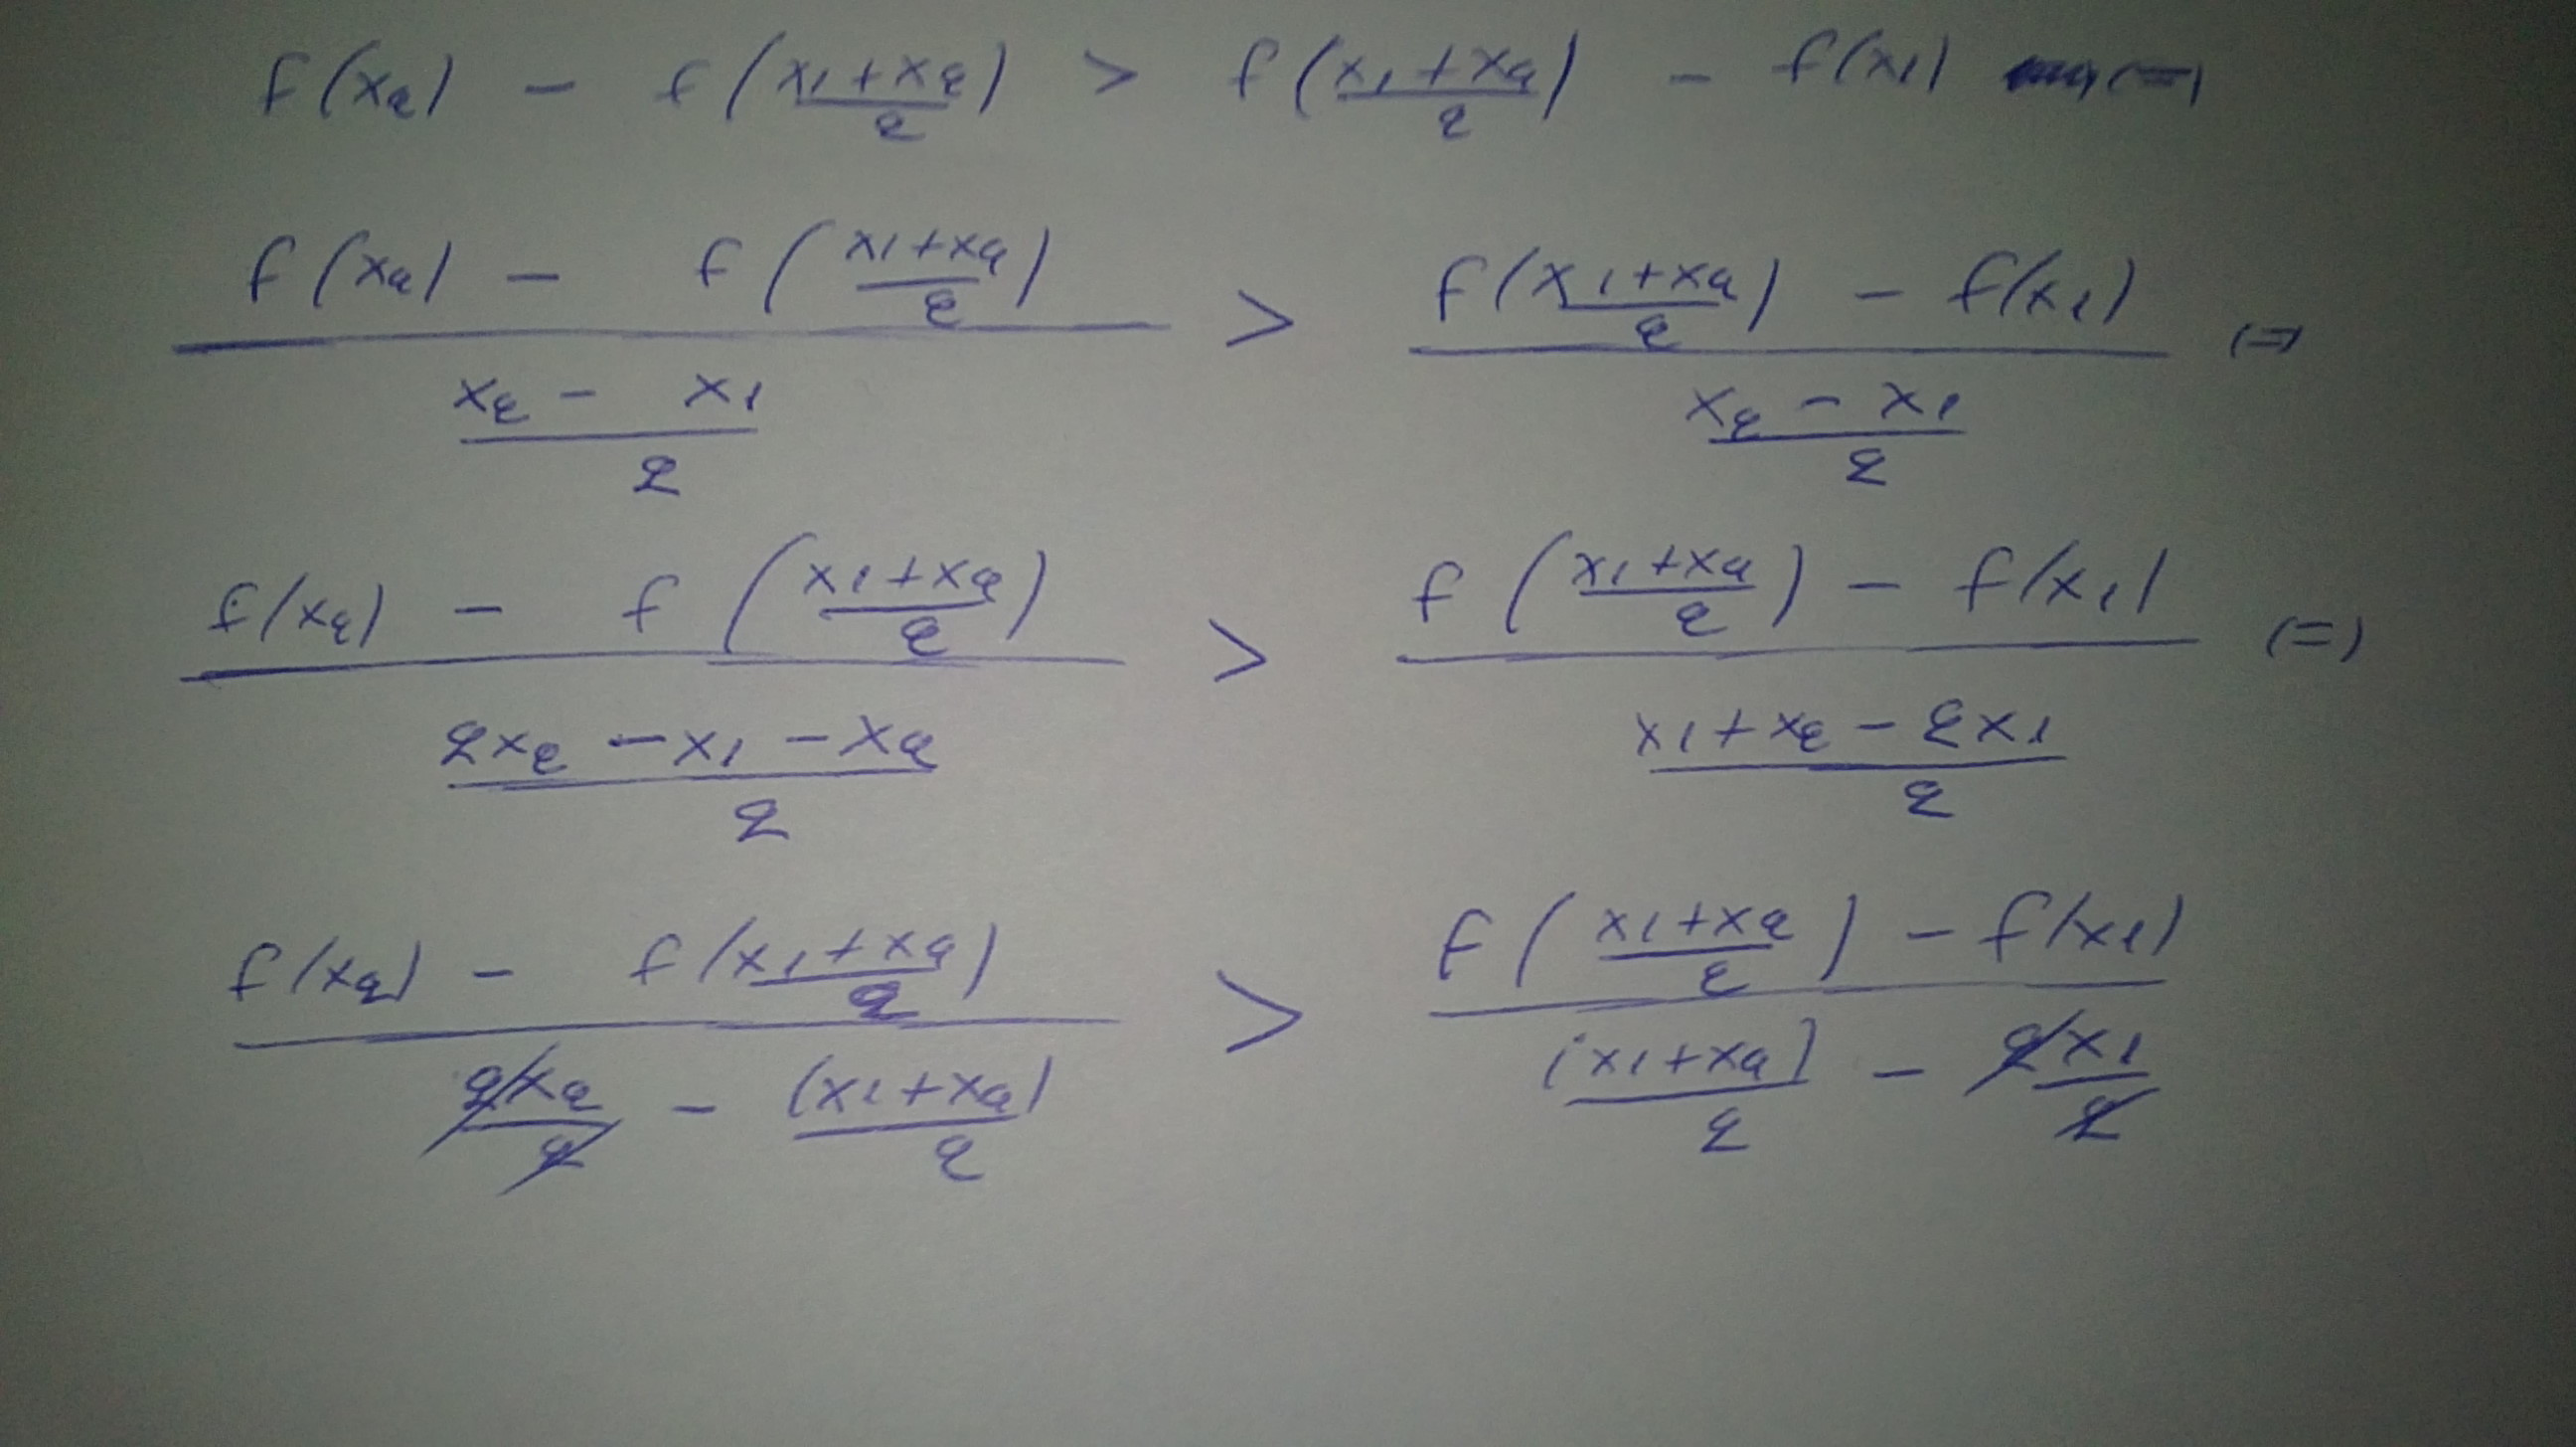 f(x₂) - f(x₁+x₂/2) > f(x₁+x₂/2) - f(x₁) (=)
f(x₂) - f(x₁+x₂/2) / x₂ - x₁/2 > f(x₁+x₂/2) - f(x₁) / x₂ - x₁/2 (=)
f(x₂) - f(x₁+x₂/2) / 2x₂ - x₁ - x₂/2 > f(x₁+x₂/2) - f(x₁) / x₁+x₂ - 2x₁/2 (=)
f(x₂) - f(x₁+x₂/2) / 2x₂/2 - (x₁+x₂)/2 > f(x₁+x₂/2) - f(x₁) / (x₁+x₂)/2 - 2x₁/2